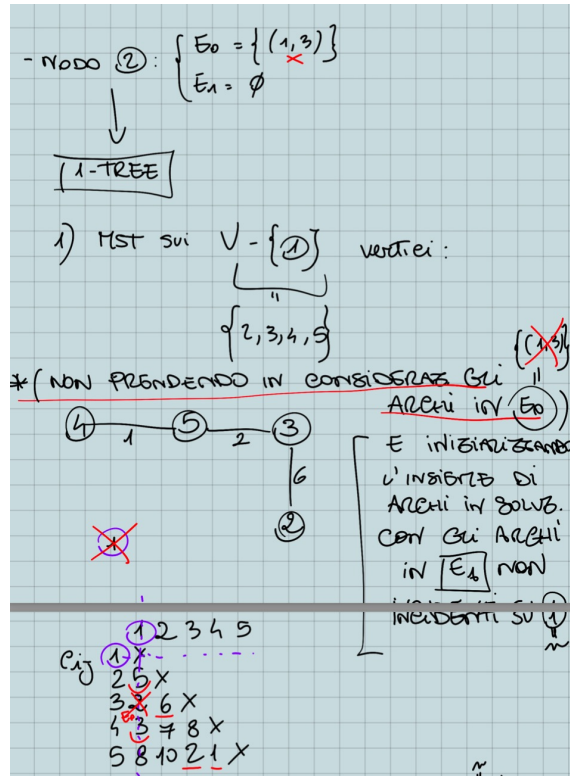 - NODO 2 : { E0 = { (1,3) }
E1 = ∅
1-TREE
1) MST SUI V - {1} vertici :
"
{2,3,4,5}
{(1,3)}
"
* ( NON PRENDENDO IN CONSIDERAZ GLI
ARCHI IN E0 )
4 1 5 2 3
6
2
1
E INIZIALIZZANDO
L'INSIEME DI
ARCHI IN SOLUZ.
CON GLI ARCHI
IN E1 NON
INCIDENTI SU 1
1 2 3 4 5
Cij 1 X
2 5 X
3 6 X
E0
4 3 7 8 X
5 8 10 2 1 X